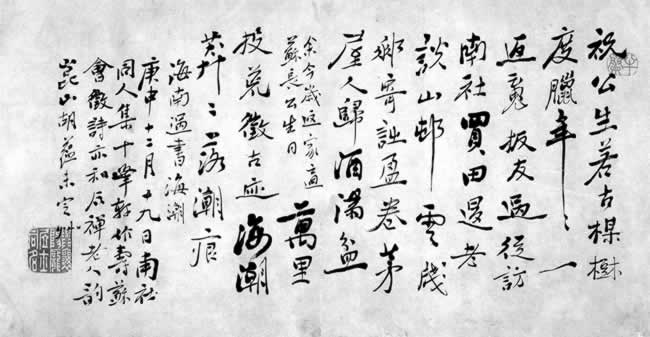 祝公生若古楳樹
度臘年年一
返魂扳友過從訪
南社買田還考
談山邨雲箋
郵寄詩盈卷茅
屋人歸酒滿盆
余今歲返家適
蘇長公生日
萬里
投荒徵古迹海潮
莽莽落潮痕
海南過書海潮
庚申十二月十九日南社
同人集十峯軒作壽蘇
會徵詩亦和辰禪老人韵
崑山胡蘊未定艸